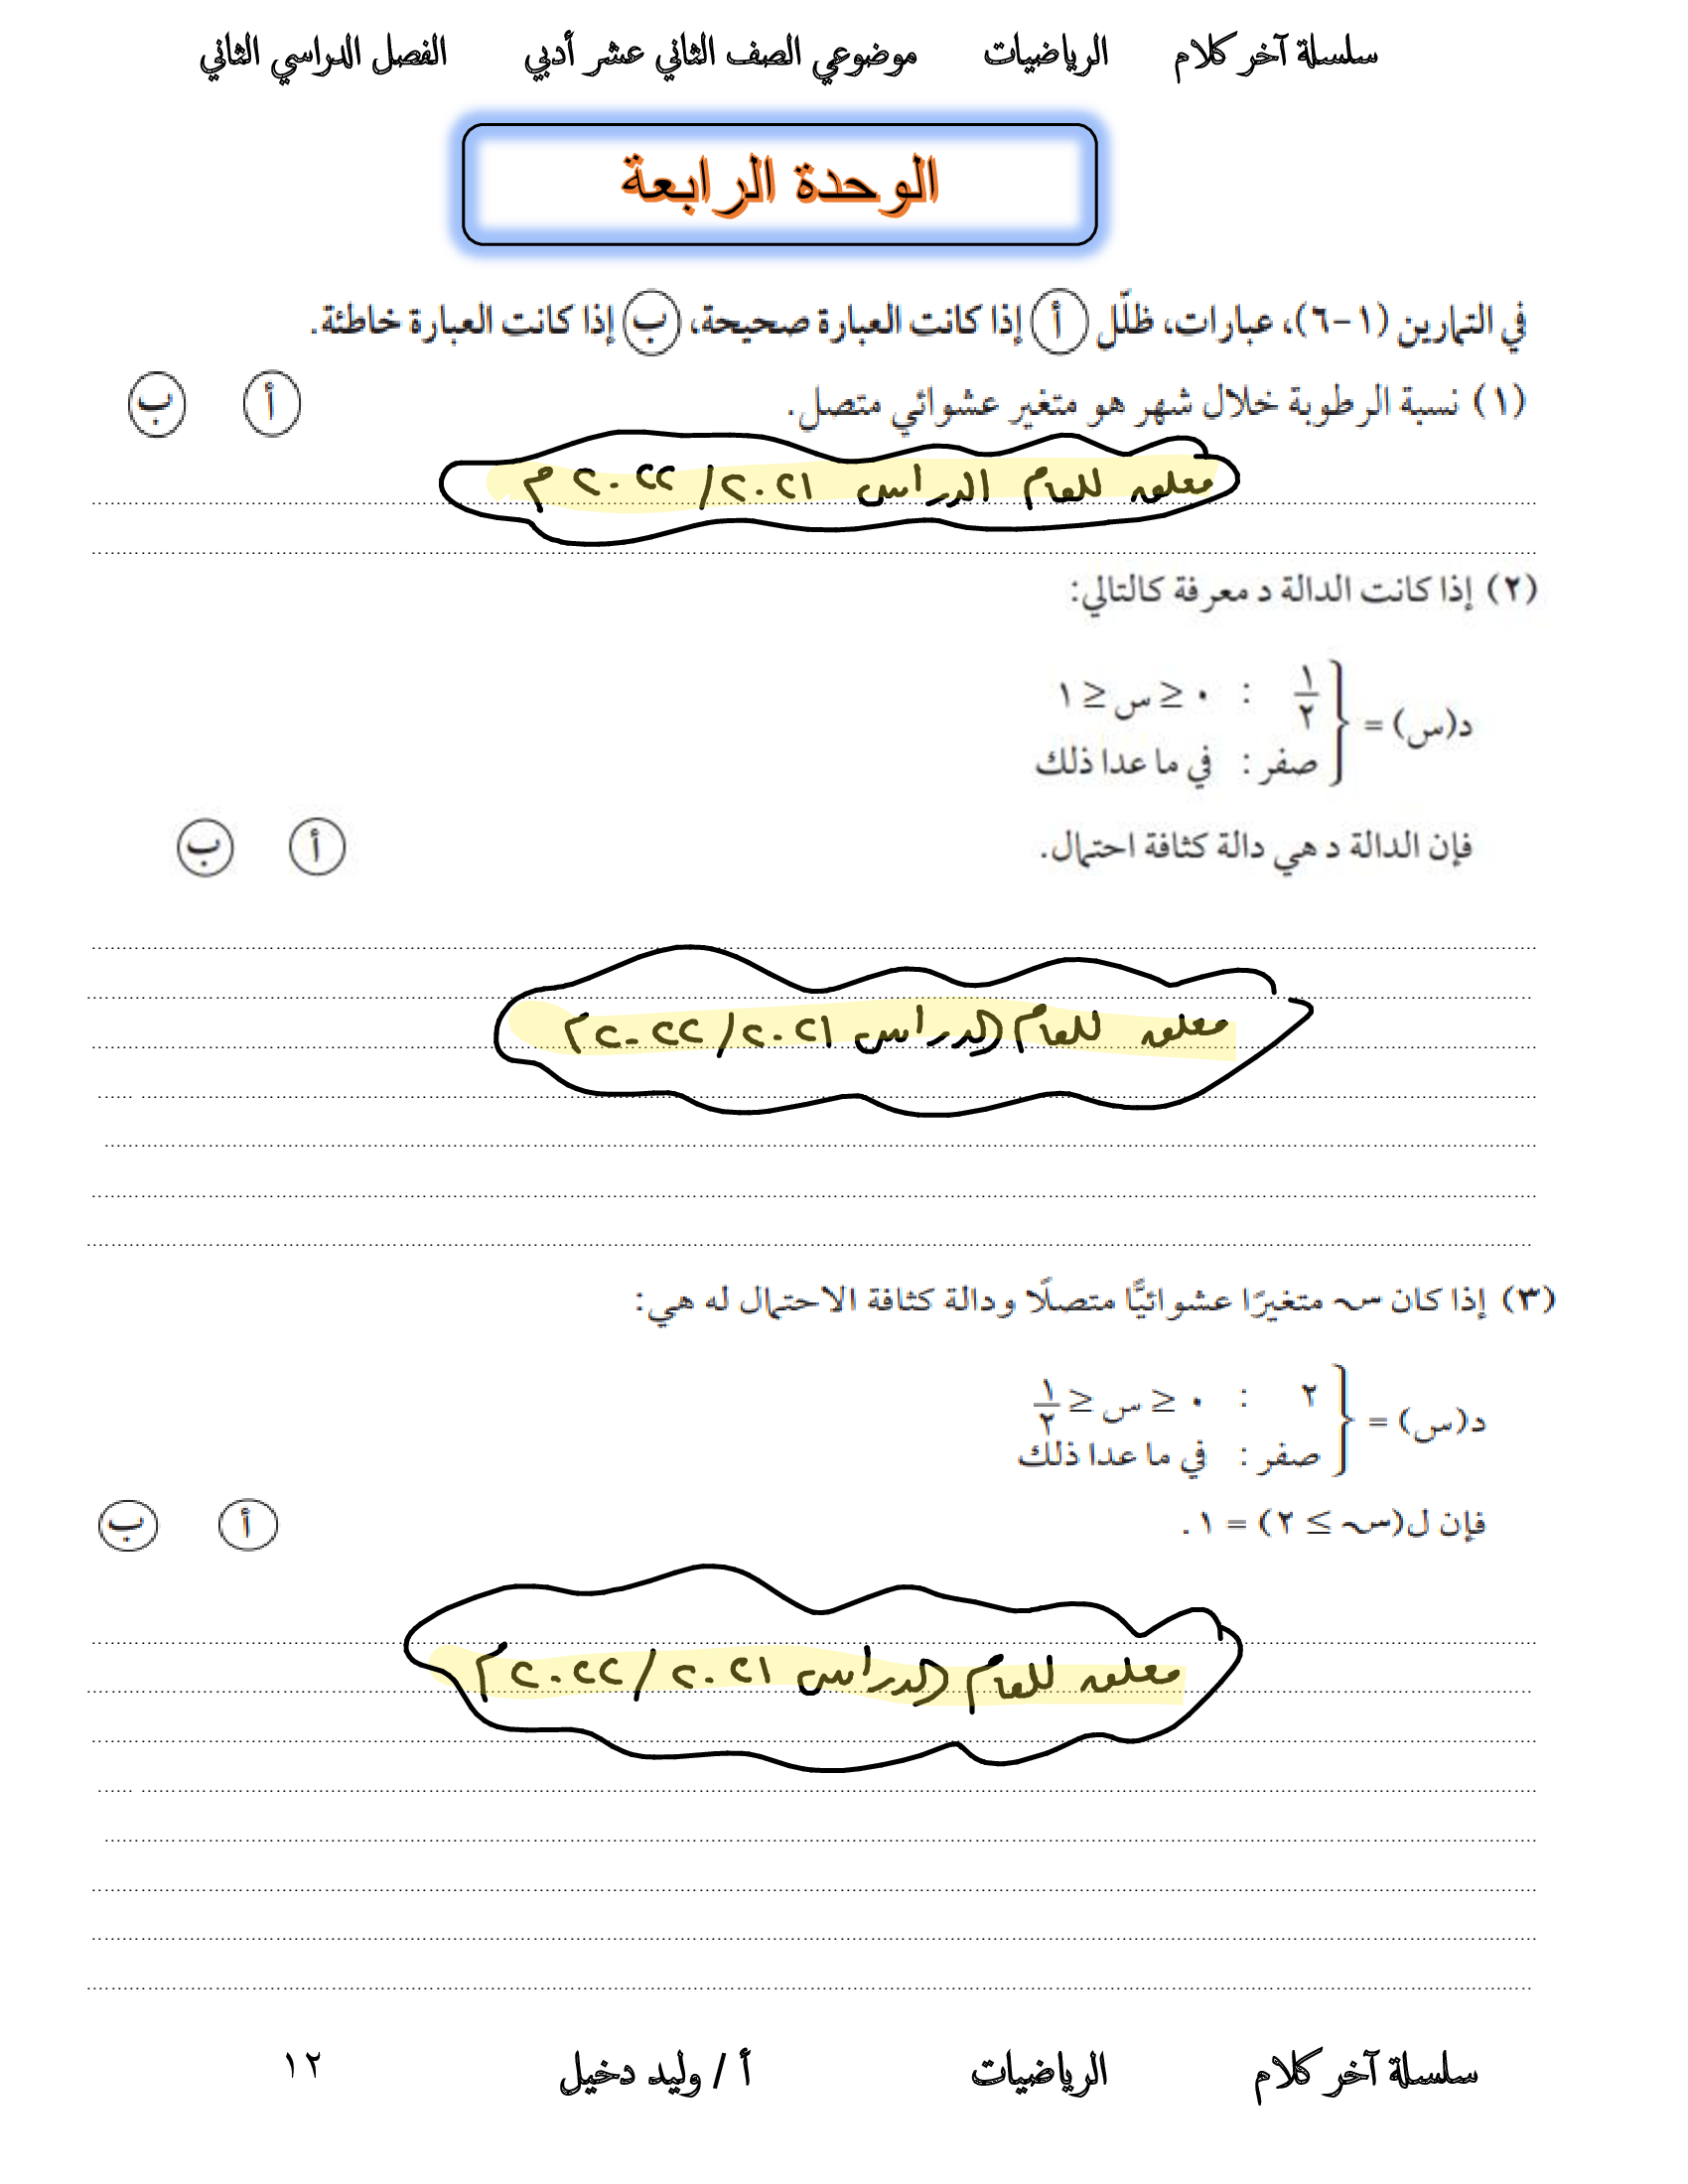 سلسلة آخر كلام الرياضيات موضوعي الصف الثاني عشر أدبي الفصل الدراسي الثاني
الوحدة الرابعة
في التمارين (١-٦)، عبارات، ظلّل أ إذا كانت العبارة صحيحة، ب إذا كانت العبارة خاطئة.
(١) نسبة الرطوبة خلال شهر هو متغير عشوائي متصل. أ ب
معلق للعام الدراسي ٢٠٢١/٢٠٢٢ م
(٢) إذا كانت الدالة د معرفة كالتالي:
د(س) = { ١/٢ : ٠ ≤ س ≤ ١
صفر : في ما عدا ذلك
فإن الدالة د هي دالة كثافة احتمال. أ ب
معلق للعام الدراسي ٢٠٢١/٢٠٢٢ م
(٣) إذا كان س متغيرًا عشوائيًّا متصلًا ودالة كثافة الاحتمال له هي:
د(س) = { ٢ : ٠ ≤ س ≤ ١/٢
صفر : في ما عدا ذلك
فإن ل(س ≥ ٢) = ١. أ ب
معلق للعام الدراسي ٢٠٢١/٢٠٢٢ م
سلسلة آخر كلام الرياضيات أ / وليد دخيل ١٢